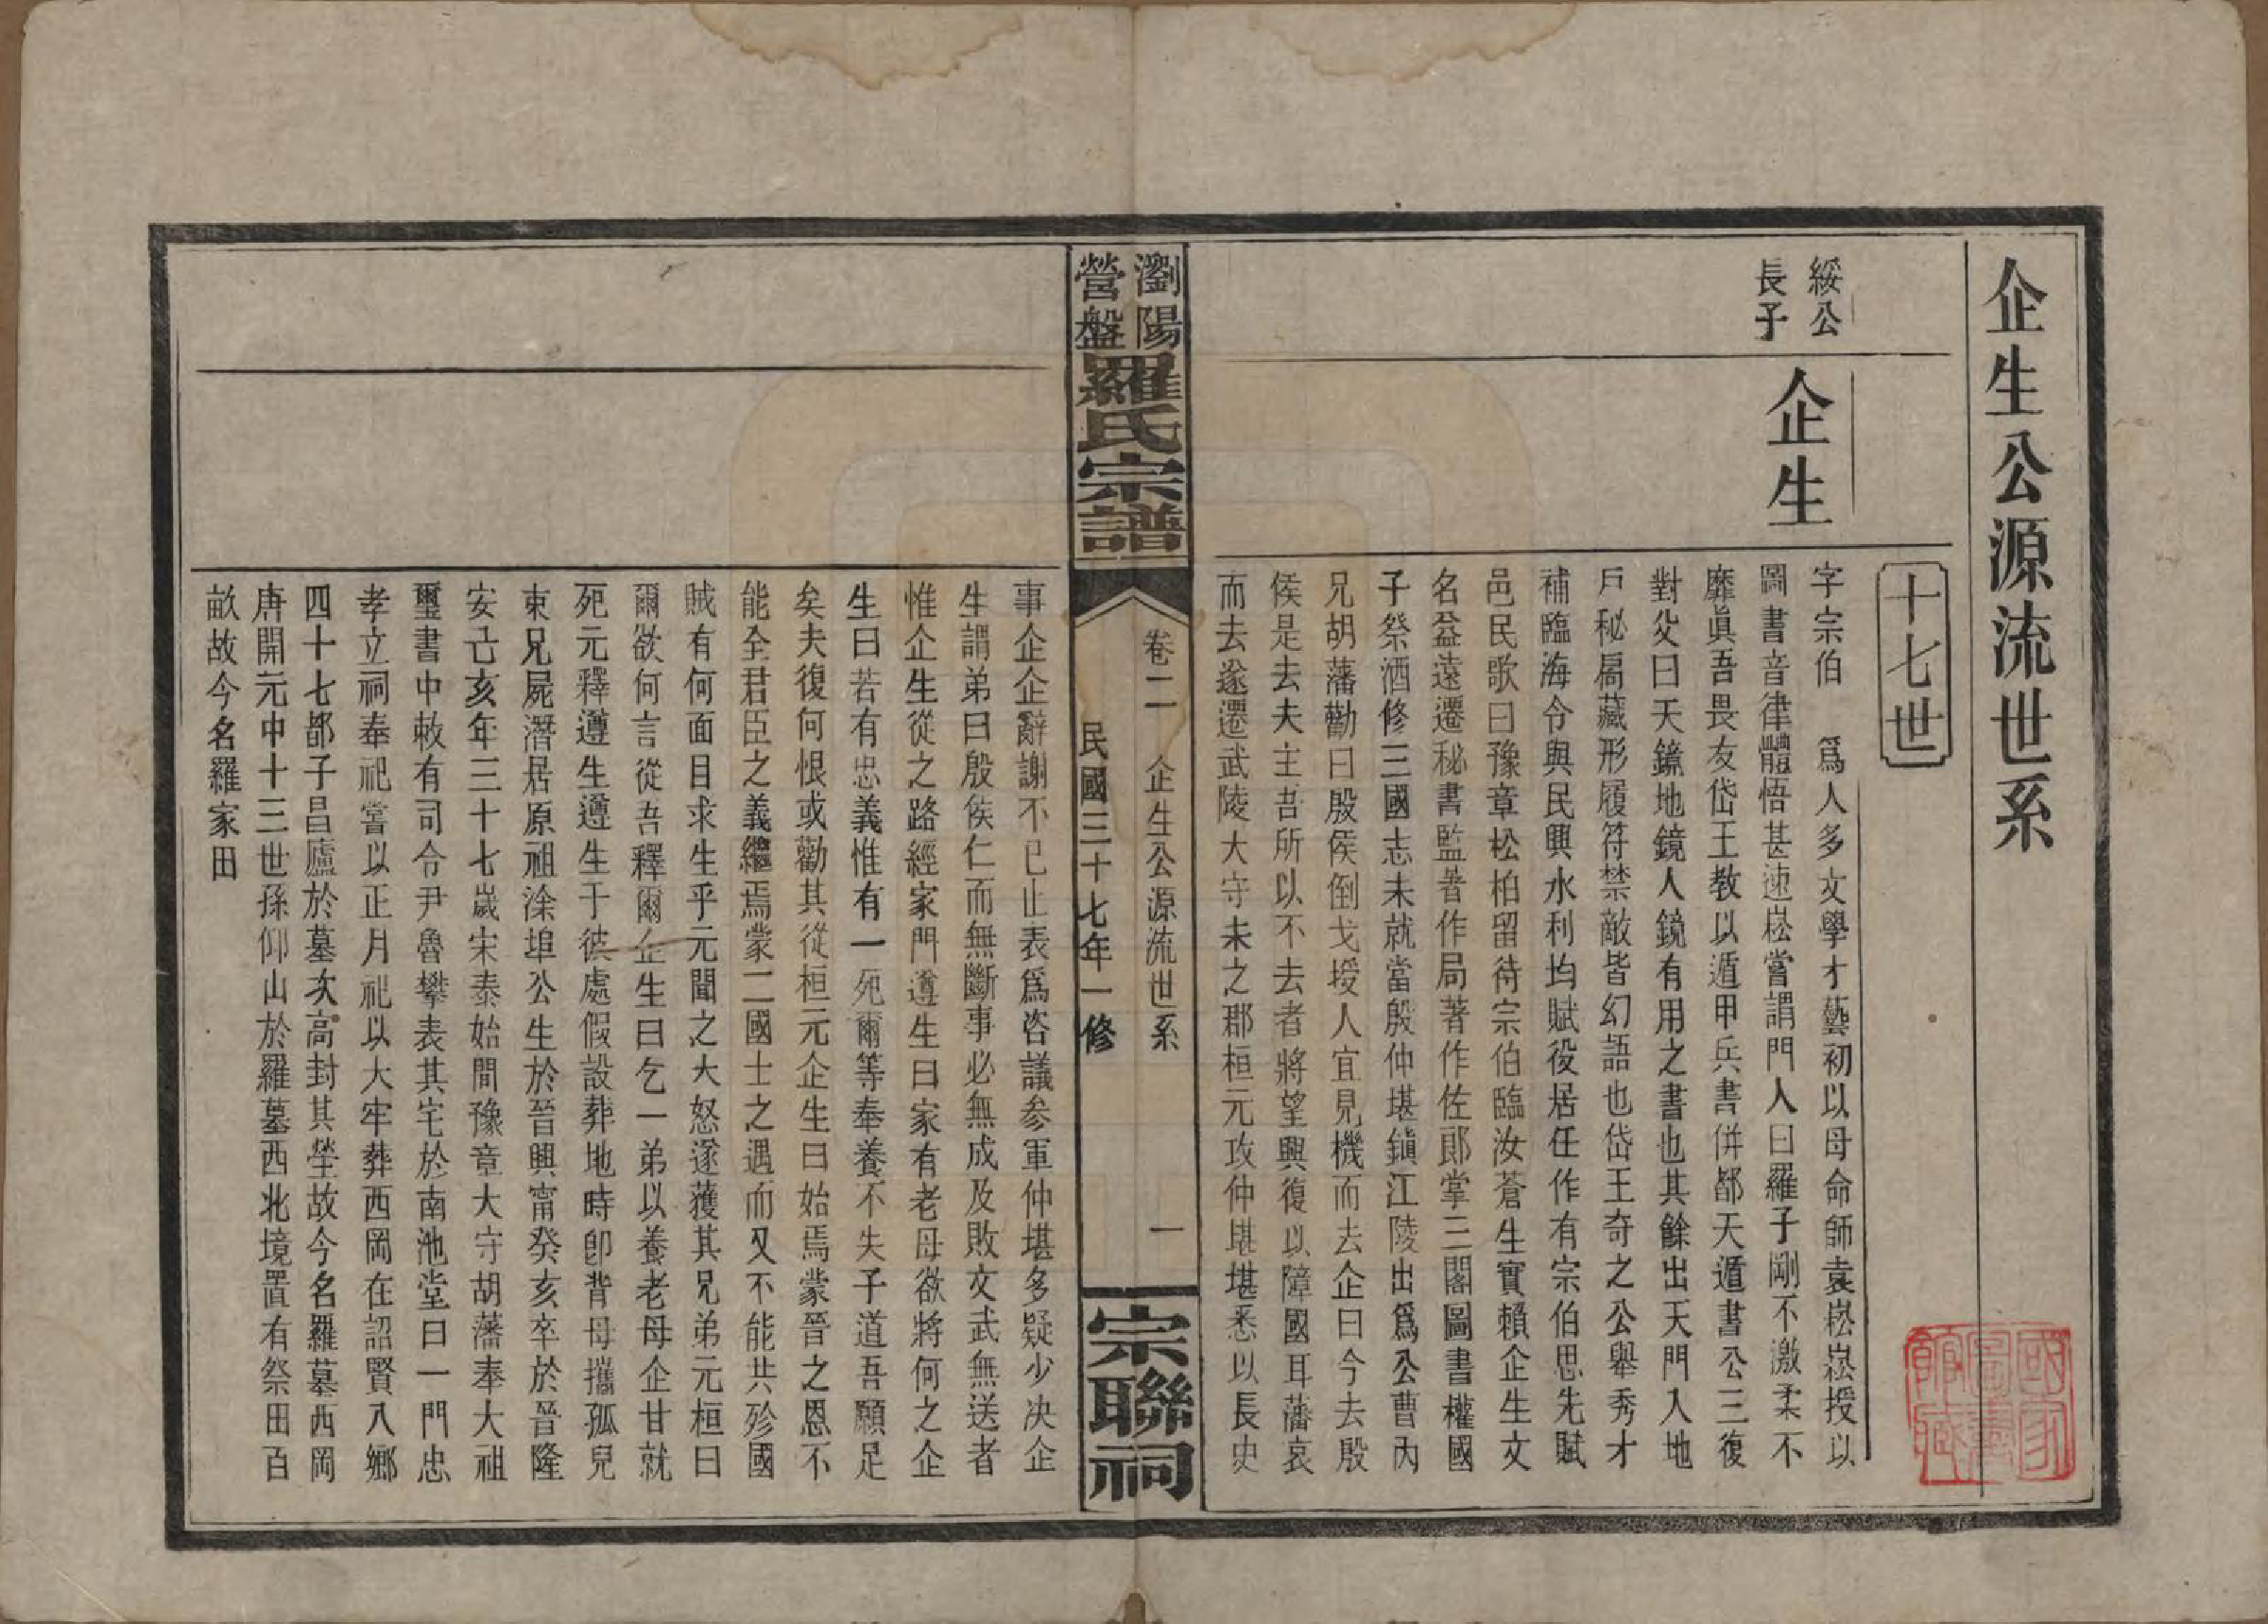 企生公源流世系
十七世
綏公
長子
企生
字宗伯　爲人多文學才藝初以母命師袁崧崧授以
圖書音律體悟甚速崧嘗謂門人曰羅子剛不激柔不
靡眞吾畏友岱王教以遁甲兵書併都天遁書公三復
對父曰天鏡地鏡人鏡有用之書也其餘出天門入地
戶秘局藏形履符禁敵皆幻語也岱王奇之公舉秀才
補臨海令與民興水利均賦役居任作有宗伯思先賦
邑民歌曰豫章松柏留待宗伯臨汝蒼生實賴企生文
名益遠遷秘書監著作局著作佐郎掌三閣圖書權國
子祭酒修三國志未就當殷仲堪鎮江陵出爲公曹內
兄胡藩勸曰殷侯倒戈授人宜見機而去企曰今去殷
侯是去夫主吾所以不去者將望興復以障國耳藩哀
而去遂遷武陵大守未之郡桓元攻仲堪堪悉以長史
瀏陽
營盤
羅氏宗譜
卷二　企生公源流世系　一
民國三十七年一修
宗聯祠
事企企辭謝不已止表爲咨議参軍仲堪多疑少决企
生謂弟曰殷侯仁而無斷事必無成及敗文武無送者
惟企生從之路經家門遵生曰家有老母欲將何之企
生曰若有忠義惟有一死爾等奉養不失子道吾願足
矣夫復何恨或勸其從桓元企生曰始焉蒙晉之恩不
能全君臣之義繼焉蒙二國士之遇而又不能共殄國
賊有何面目求生乎元聞之大怒遂獲其兄弟元桓曰
爾欲何言從吾釋爾企生曰乞一弟以養老母企甘就
死元釋遵生遵生于彼處假設葬地時卽背母攜孤兒
東兄屍潛居原祖涂埠公生於晉興甯癸亥卒於晉隆
安己亥年三十七歲宋泰始間豫章大守胡藩奉大祖
璽書中敕有司令尹魯攀表其宅於南池堂曰一門忠
孝立祠奉祀嘗以正月祀以大牢葬西岡在詔賢入鄉
四十七都子昌廬於墓次高封其塋故今名羅墓西岡
唐開元中十三世孫仰山於羅墓西北境置有祭田百
畝故今名羅家田
國家
圖書
館藏